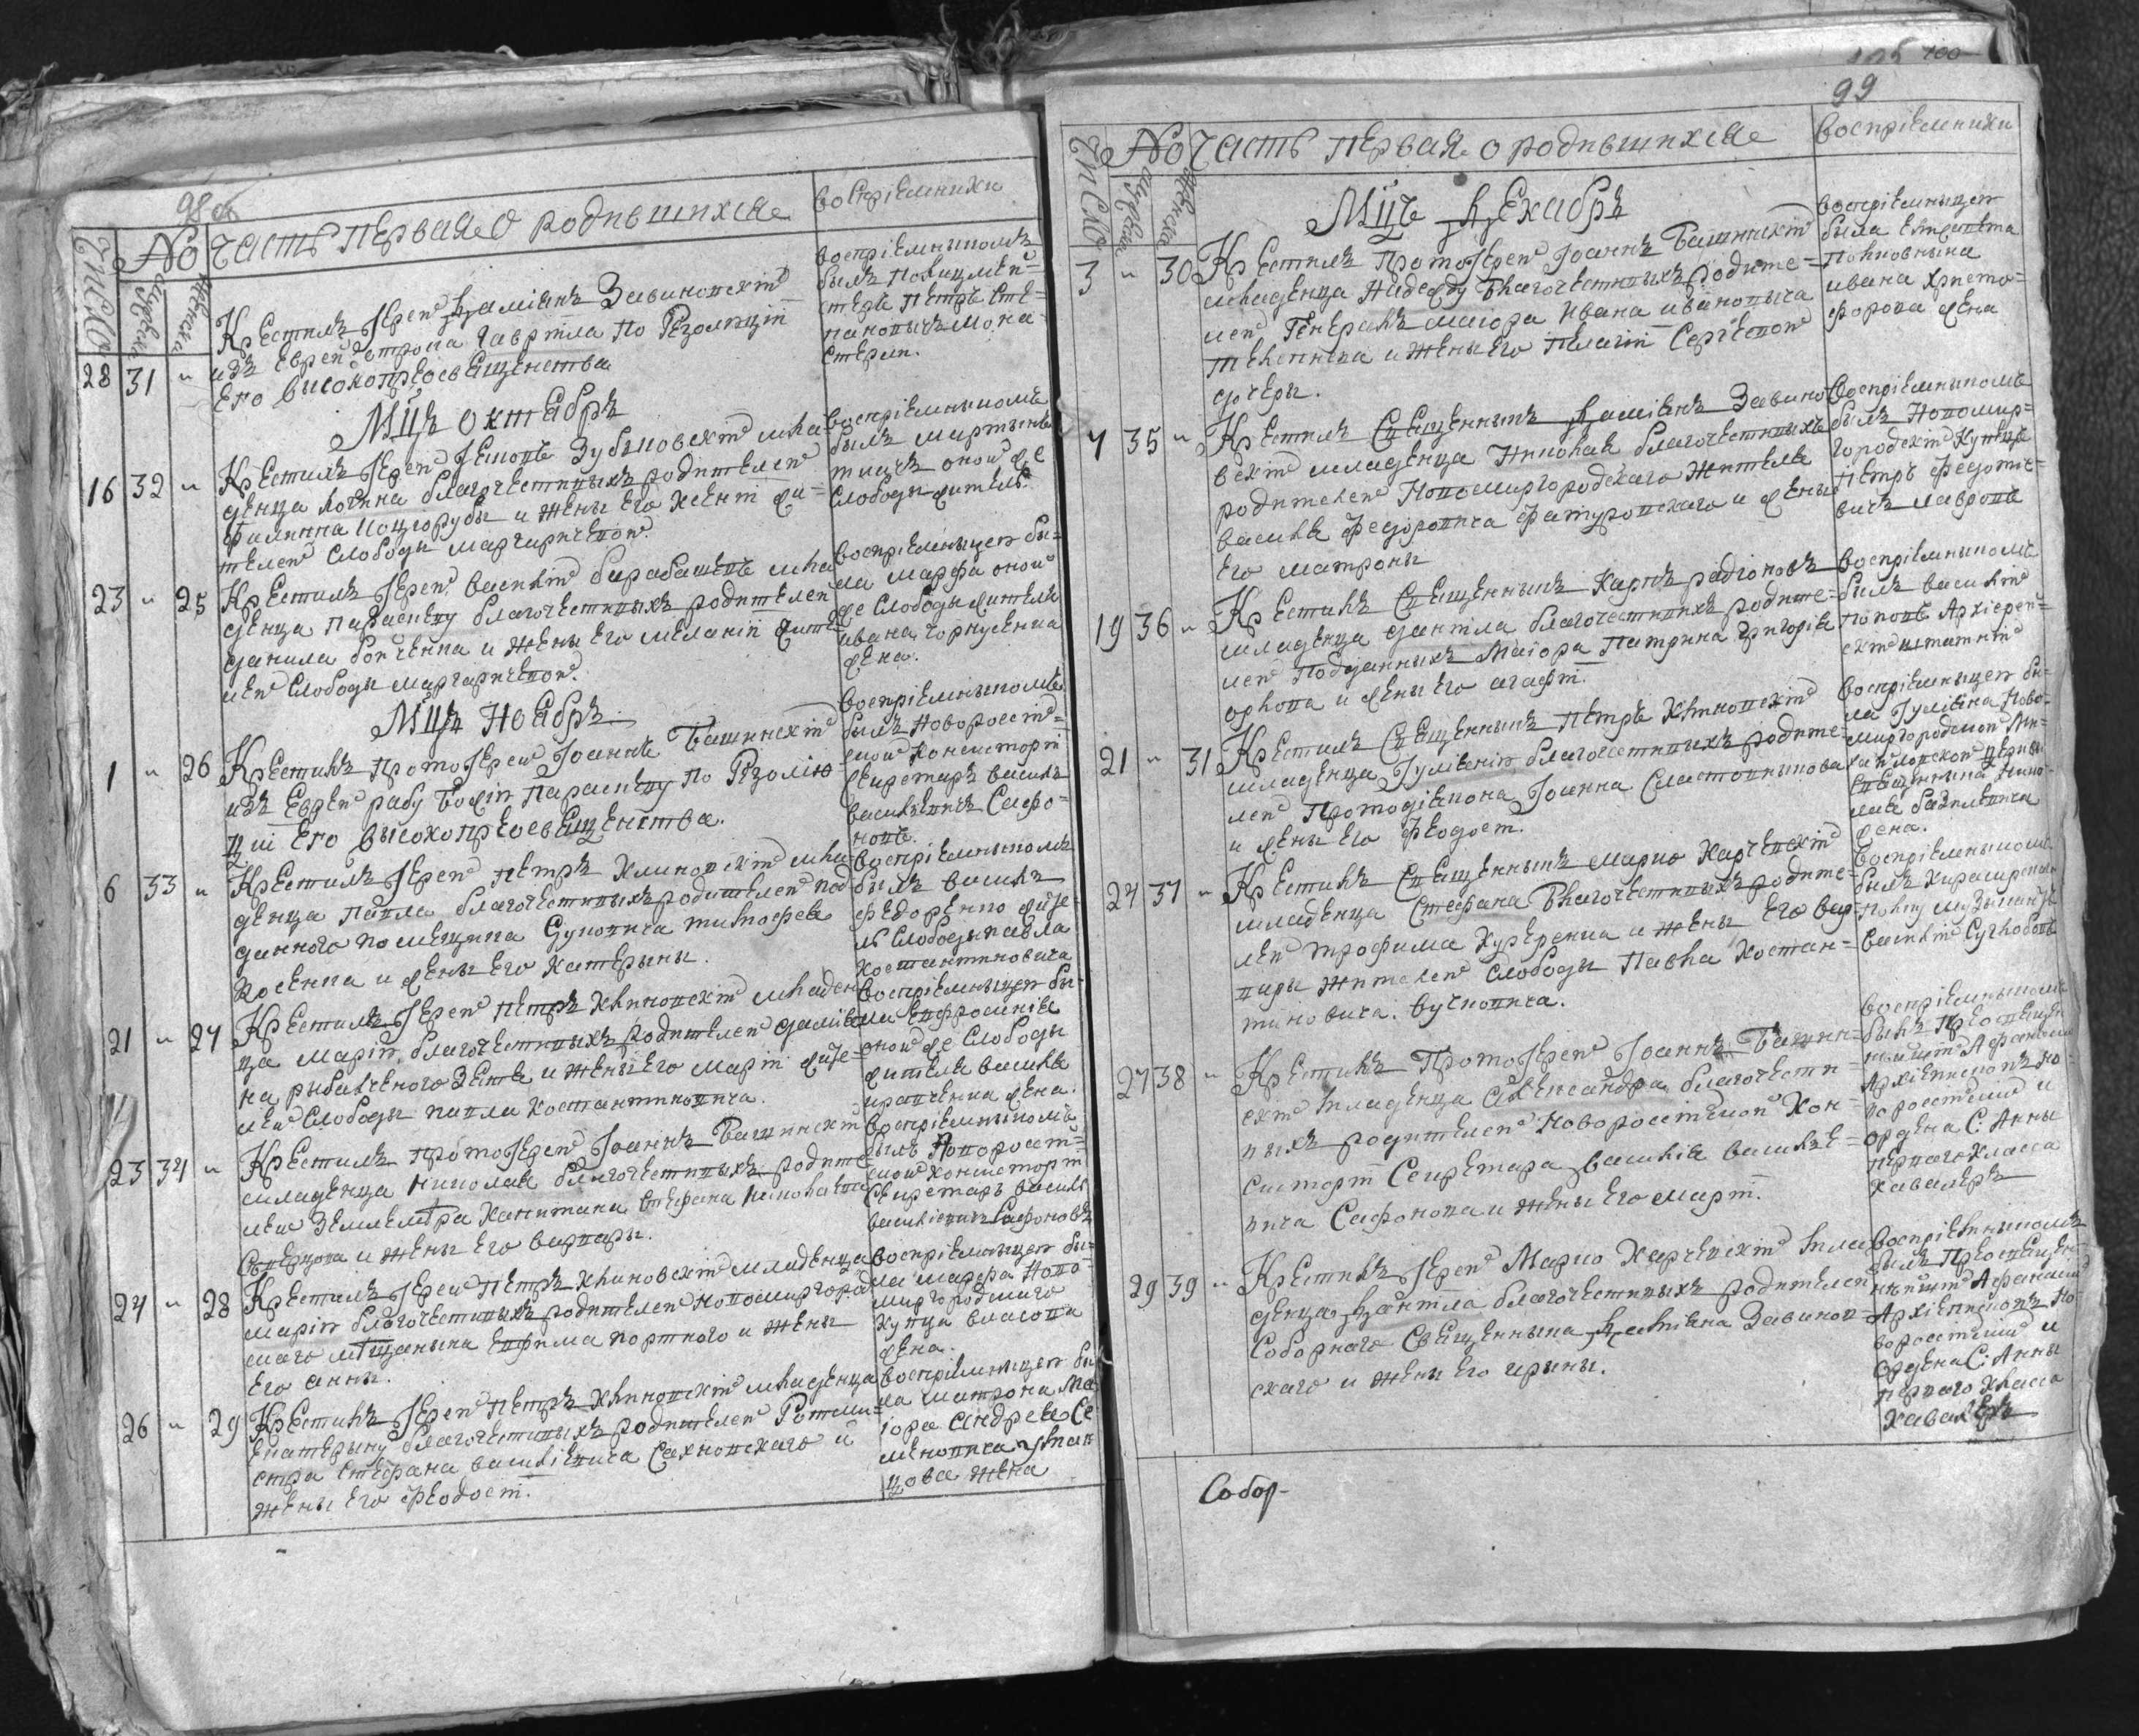 98 об
Число
No
мужеска
женска
Часть первая о родившихся
воспріемники
28 31 "
Крестилъ Іерей Даміанъ Завиновскій
изъ еврей отрока Гавріила по резолюціи
его высокопреосвященства
воспріемникомъ
былъ полицмей=
стеръ Петръ Сте=
пановичъ Мона=
стерли.
Мцъ Октябръ
16 32 "
Крестилъ Іерей Зубиновскій мла
денца Логина благочестивыхъ родителей
Филиппа и жены его Ксеніи жи=
телей слободы Маргаритевой.
воспріемникомъ
былъ Мартынъ
оной же
слободы житель.
23 " 25
Крестилъ Іерей Василій Барабашевъ мла
денца Параскеву благочестивыхъ родителей
Данила Бойченка и жены его Меланіи жите=
лей слободы Маргаритевой.
воспріемницей бы=
ла Марфа оной
же слободы жителя
Ивана Горкусенка
жена.
Мцъ Ноябръ
1 " 26
Крестилъ Протоіерей Іоаннъ Башинскій
изъ еврей рабу Божію Параскеву по резолю
ціи его высокопреосвященства.
воспріемникомъ
былъ Новоросій=
ской Консисторіи
секретаръ Василъ
Василіевичъ Сафо=
новъ.
6 33 "
Крестилъ Іерей Петръ Клиновскій мла
денца Павла благочестивыхъ родителей под
данного помещика Тимофея
Косенка и жены его Катерыны.
воспріемникомъ
былъ Василъ
Федоренко жите=
лъ слободы Павла
Костантиновича
21 " 27
Крестилъ Іерей Петръ Клиновскій младен
ца Марію благочестивыхъ родителей Даміа
на Рыбалченого зятя и жены его Маріи жите=
лей слободы Павла Костантиновича.
воспріемницей бы=
ла Евфросинія
оной же слободы
жителя Василя
Кравченка жена.
23 34 "
Крестилъ Протоіерей Іоаннъ Башинскій
младенца Николая благочестивыхъ родите
лей землемѣра капитана Стефана Николаевича
и жены его Варвары.
воспріемникомъ
былъ Новоросій=
ской Консисторіи
секретаръ Василъ
Василіевичъ Сафоновъ
24 " 28
Крестилъ Іерей Петръ Клиновскій младенца
Марію благочестивыхъ родителей Новомиргород
скаго мѣщанина Ефима Портного и жены
его Анны.
воспріемницей бы=
ла Марфа Ново=
миргородскаго
купца Власова
жена.
26 " 29
Крестилъ Іерей Петръ Клиновскій младенца
Екатерыну благочестивыхъ родителей Ротми=
стра Стефана Василіевича Сахновскаго и
жены его Феодосіи.
воспріемницей бы
ла Матрона Ма
іора Андрея Се
меновича
жена
105 100
99
Число
No
мужеска
женска
Часть первая о родившихся
воспріемники
Мцъ Декабръ
3 " 30
Крестилъ Протоіерей Іоаннъ Башинскій
младенца Надежду благочестивыхъ родите=
лей Генералъ маіора Ивана Ивановича
и жены его Пелагіи Сергѣевой
дочеры.
воспріемницей
была
Полковника
Ивана Христо=
форова жена
7 35 "
Крестилъ Священникъ Даміанъ Завино
вскій младенца Николая благочестивыхъ
родителей Новомиргородскаго жителя
Василя Федоровича и жены
его Матроны
воспріемникомъ
былъ Новомир=
городскій купецъ
Петръ Федото=
вичъ Лавровъ
19 36 "
Крестилъ Священникъ Карпъ Радіоновъ
младенца Даніила благочестивыхъ родите=
лей подданныхъ Маіора Григорія
Орлова и жены его Агафіи.
воспріемникомъ
былъ Василій
Поповъ Архіерей=
скій штатній
21 " 31
Крестилъ Священникъ Петръ Клиновскій
младенца Іуліянію благочестивыхъ родите=
лей Протодіакона Іоанна Сластонникова
и жены его Феодосіи.
воспріемницей бы=
ла Іуліяна Ново=
миргородской Ни=
колаевской церкви
священника Нико=
лая
жена.
24 37 "
Крестилъ Священникъ Марко Харченскій
младенца Стефана благочестивыхъ родите=
лей Трофима и жены его Вар=
вары жителей слободы Павла Костан=
тиновича.
воспріемникомъ
былъ
полку музыкантъ
Василій
27 38 "
Крестилъ Протоіерей Іоаннъ Башин=
скій младенца Александра благочести=
выхъ родителей Новоросійской Кон=
систоріи Секретара Василія Василіе=
вича Сафонова и жены его Маріи.
воспріемникомъ
былъ Преосвящен
нѣйшій Афанасій
Архіепископъ Но=
воросійскій и
ордена С: Анны
перваго класса
кавалеръ
29 39 "
Крестилъ Іерей Марко Харченскій мла
денца Даніила благочестивыхъ родителей
Соборнаго Священника Даміана Завинов=
скаго и жены его Ирины.
воспріемникомъ
былъ Преосвящен
нѣйшій Афанасій
Архіепископъ Но
воросійскій и
ордена С: Анны
перваго класса
кавалеръ
Собор-